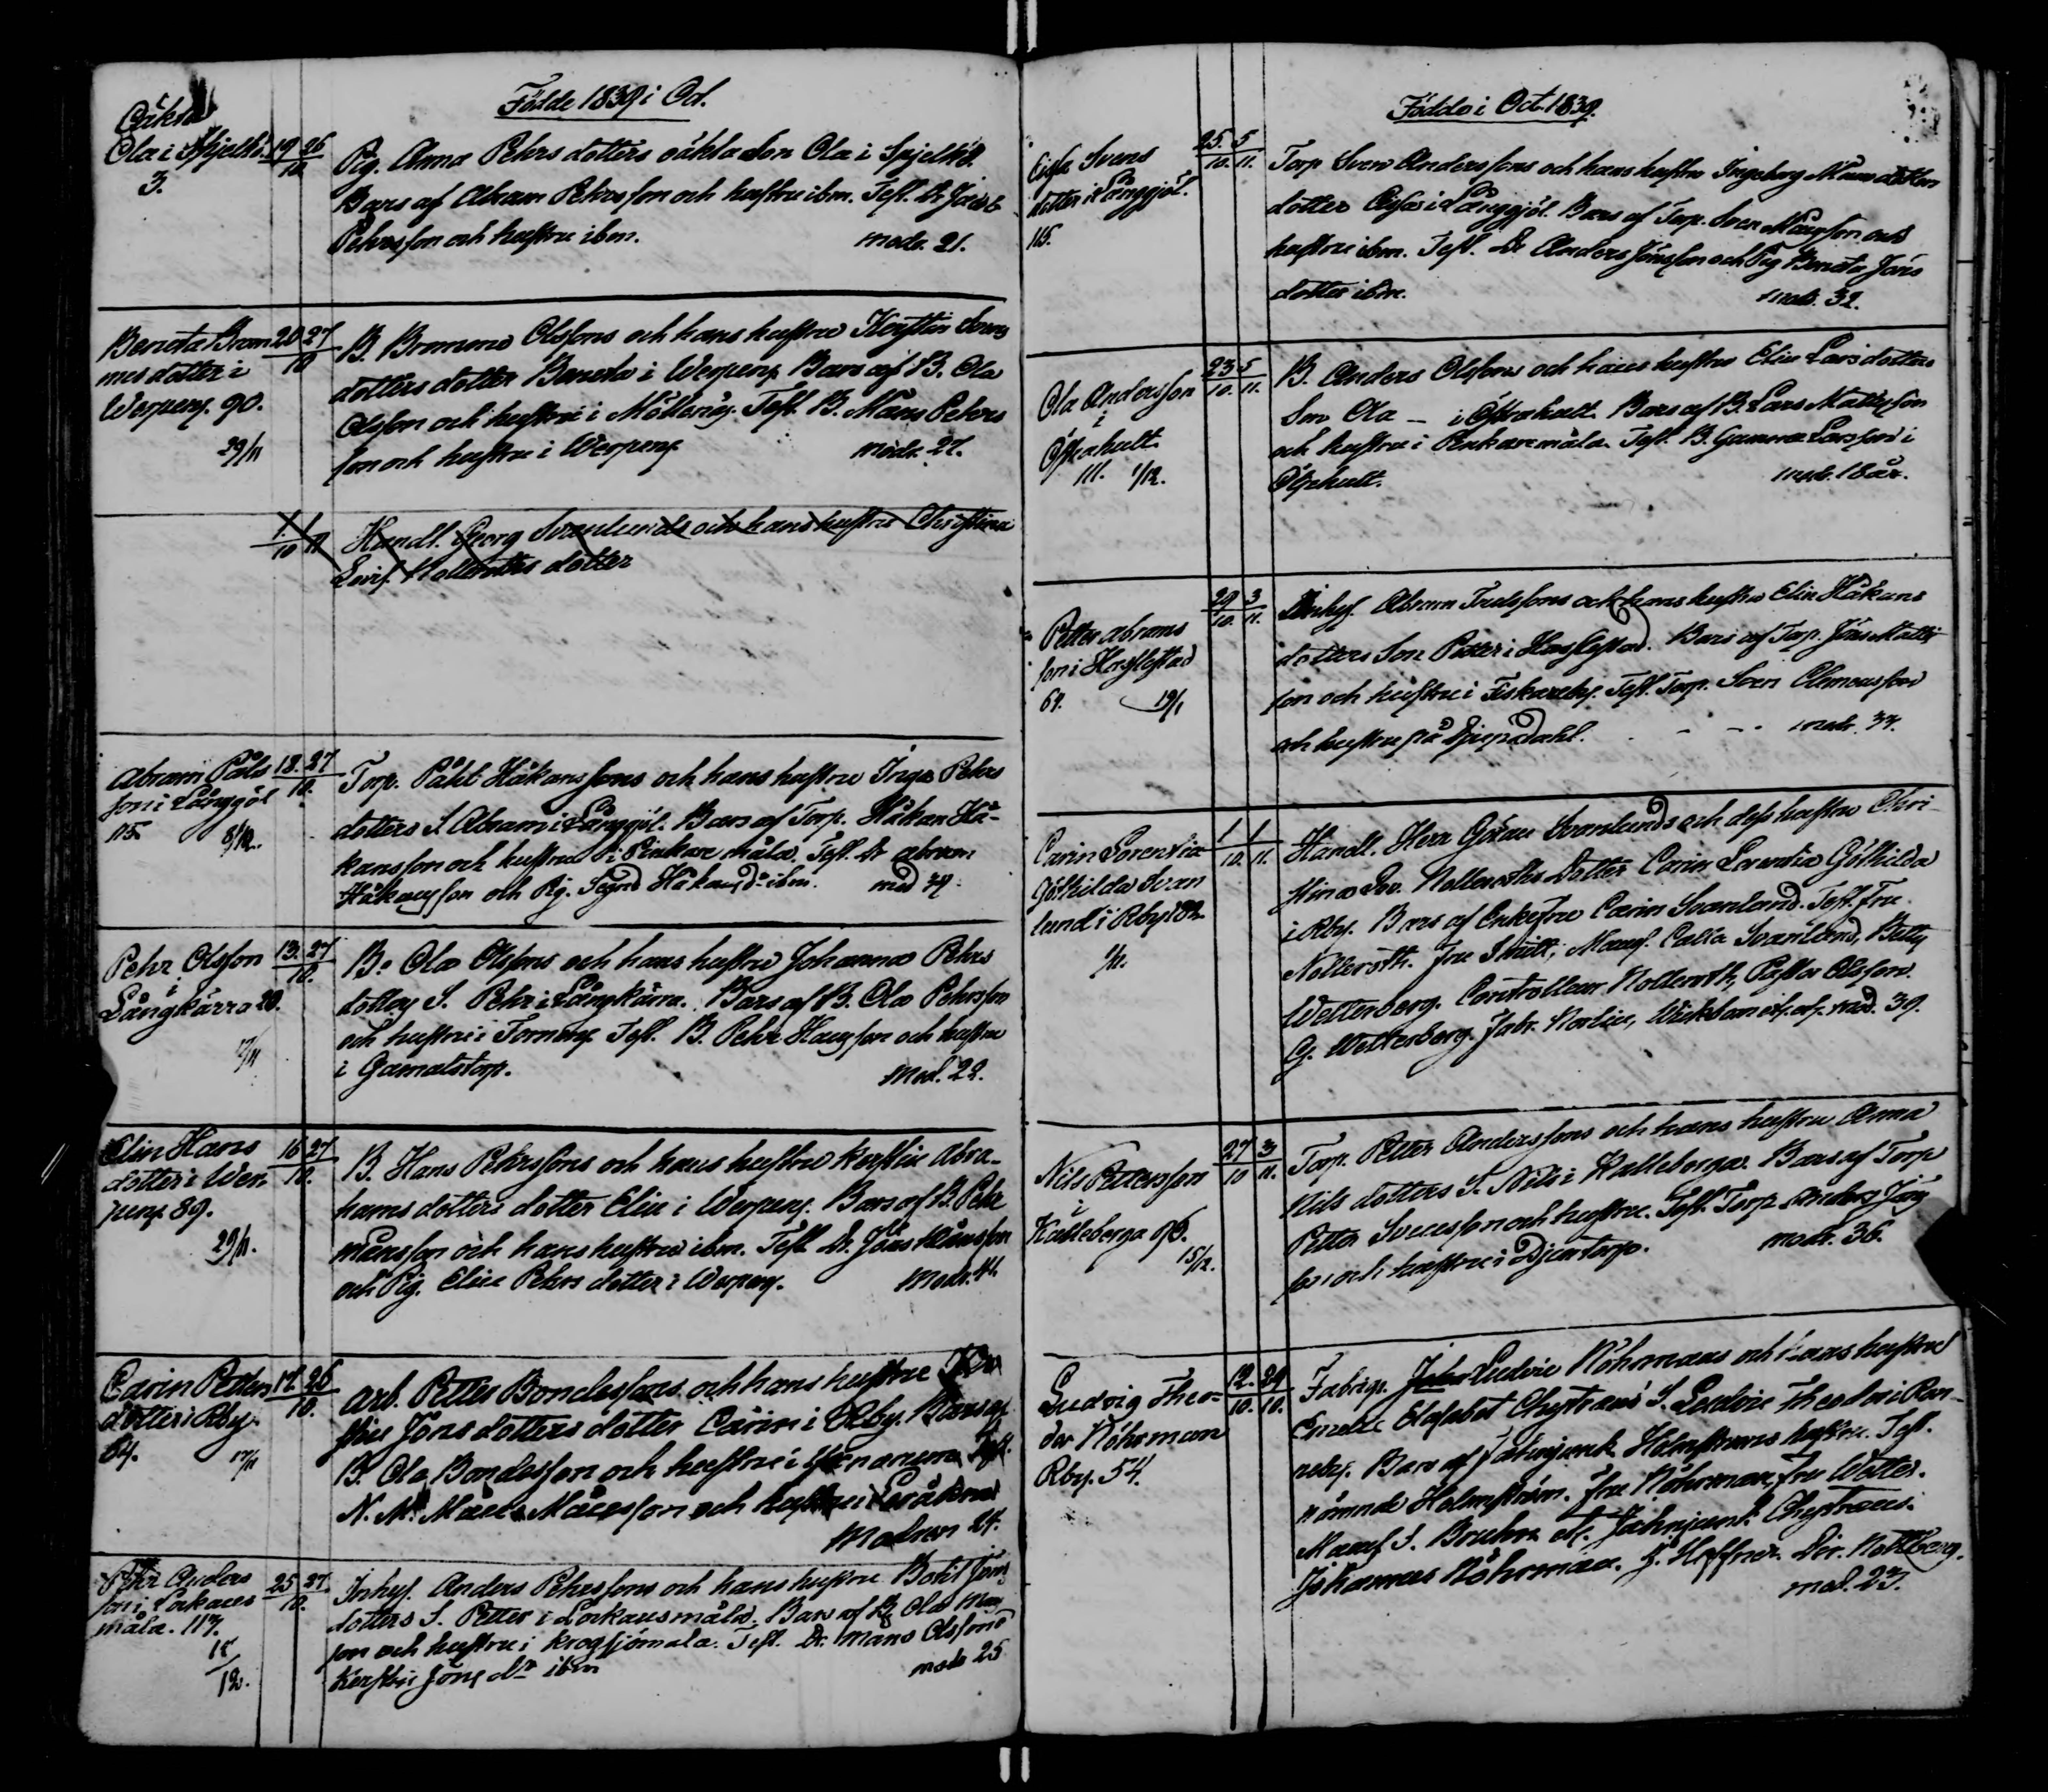 Födde 1839 i Oct.
Oäkta
Ola i Spjelkö.
3.
19 26
10.
Pig. Anna Pehrs dotters oäkta Son Ola i Spjelkö.
Bars af Abram Pehrsson och hustru ibm. Test. Dr. Jacob
Pehrsson och hustru ibm. modr. 21.
Bencta Brom
mes dotter i
Werpeng. 90.
29/11
20 27
10
B. Bromme Olssons och hans hustru Kerstin Svens
dotters dotter Bencta i Werpeng. Bars af B. Ola
Olsson och hustru i Möllenäs. Test. B. Måns Pehrs
son och hustru i Werpeng. modr. 27.
1. 1
10 11
Handl. Georg Svanlunds och hans hustru Christina
Lovis. Nolleroths dotter
Abram Påls
son i Långgöl
115. 8/12.
18. 27
10.
Torp. Påhl Håkanssons och hans hustru Inga Pehrs
dotters S. Abram i Långgöl. Bars af Torp. Håkan Hå-
kansson och hustru i Pinkare måla. Test. Dr Abram
Håkansson och Pig. Signe Håkans dr ibm. mod
Pehr Olsson
i
Långkärra 20.
17/11
13. 27
10.
B. Ola Olssons och hans hustru Johanna Pehrs
dotters S. Pehr i Långkärra. Bars af B. Ola Pehrsson
och hustru i Torneryd. Test. B. Pehr Hansson och hustru
i Gamalstorp. Mod. 22.
Elin Hans
dotter i Wer
peng. 89.
29/11.
16 27
10.
B. Hans Pehrssons och hans hustru Kerstin Abra-
hams dotters dotter Elin i Werpeng. Bars af B. Pehr
Månsson och hans hustru ibm. Test. Dr. Jöns Månsson
och Pig. Elin Pehrs dotter i Werpeng. Modr. 41.
Carin Petters
dotter i Rby.
64. 17/11
17. 26
10.
Arb. Petter Bondessons och hans hustru Ker
stin Jöns dotters dotter Carin i Rby. Bars af
B. Ola Bondesson och hustru i Test.
N. M. Måns Månsson och hustru i
Modren 24.
Petter Anders
son i Lockans
måla. 117.
15
12.
25 27
10.
Inhys. Anders Pehrssons och hans hustru Botil Jöns
dotters S. Petter i Lockansmåla. Bars af B. Ola Mån
son och hustru i Krogsjömåla. Test. Dr. Måns Olsson o
Kerstin Jöns dr ibm modr 25
Födde i Oct. 1839.
Cissa Svens
dotter i Långgöl.
115.
25. 5
10. 11.
Torp Sven Anderssons och hans hustru Ingeborg Måns dotters
dotter Cissa i Långgöl. Bars af Torp. Sven Månsson och
hustru ibm. Test. Dr Anders Jönsson och Pig Bencta Jöns
dotter ibm. modr. 32.
Ola Andersson
i
Östrahult.
111. 1/12.
23 5
10. 11.
B. Anders Olssons och hans hustru Elin Lars dotters
Son Ola – i Östrahult. Bars af B. Lars Mattisson
och hustru i Pinkaremåla. Test. B. Gumma Larsson i
modr. 18 år.
Petter Abrams
son i Hasslestad
67. 19/1
29 3
10. 11.
Inhys. Abram Truedssons och hans hustru Elin Håkans
dotters Son Petter i Hasslestad. Bars af Torp. Jöns Mattis
son och hustru i Fiskareby. Test. Torp. Sven Clemensson
och hustru på Djupadahl. – – modr. 33.
Carin Lorentia
Göthilda Svan
lund i Rby 132
1 1
10. 11.
Handl. Herr Göran Svanlunds och dess hustru Chri-
stina Lov. Nolleroths Dotter Carin Lorentia Göthilda
i Rby. Bars af Enkefru Carin Svanlund. Test. Fru
Nolleroth. Fru Smitt, Mamsl. Calla Svanlund, Betty
Wetterberg. Controlleur Nolleroth, Pastor Olsson.
G. Wetterberg. Fabr. Norlin, mod. 39.
Nils Pettersson
i
Kalleberga 96.
15/12.
27 3
10 11.
Torp. Petter Anderssons och hans hustru Anna
Nils dotters S. Nils i Kalleberga. Bars af Torp
Petter Svensson och hustru. Test. Torp Anders Jöns
son och hustru i Djurtorp. modr. 36.
Ludvig Theo-
dor Möhrman
Rby. 54.
12. 29
10. 10.
Fabriqs. Joh. Ludvic Möhrmans och hans hustru
Emelie Elisabet Chytræus' S. Ludvic Theodor i Ron-
neby. Bars af Holmströms hustru. Test.
nämnde Holmström. Fru Möhrman, Fru Wetter.
Mamsl. S. Bruhn etc. Chytræus.
Johannes Möhrman. J. Heffner. Dir. Nettlberg.
mod. 23.